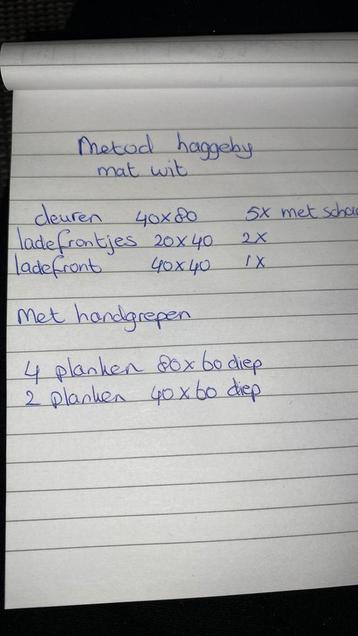 Metod haggeby
mat wit
deuren 40x80 5x met
ladefrontjes 20x40 2x
ladefront 40x40 1x
Met handgrepen
4 planken 80x60 diep
2 planken 40x60 diep